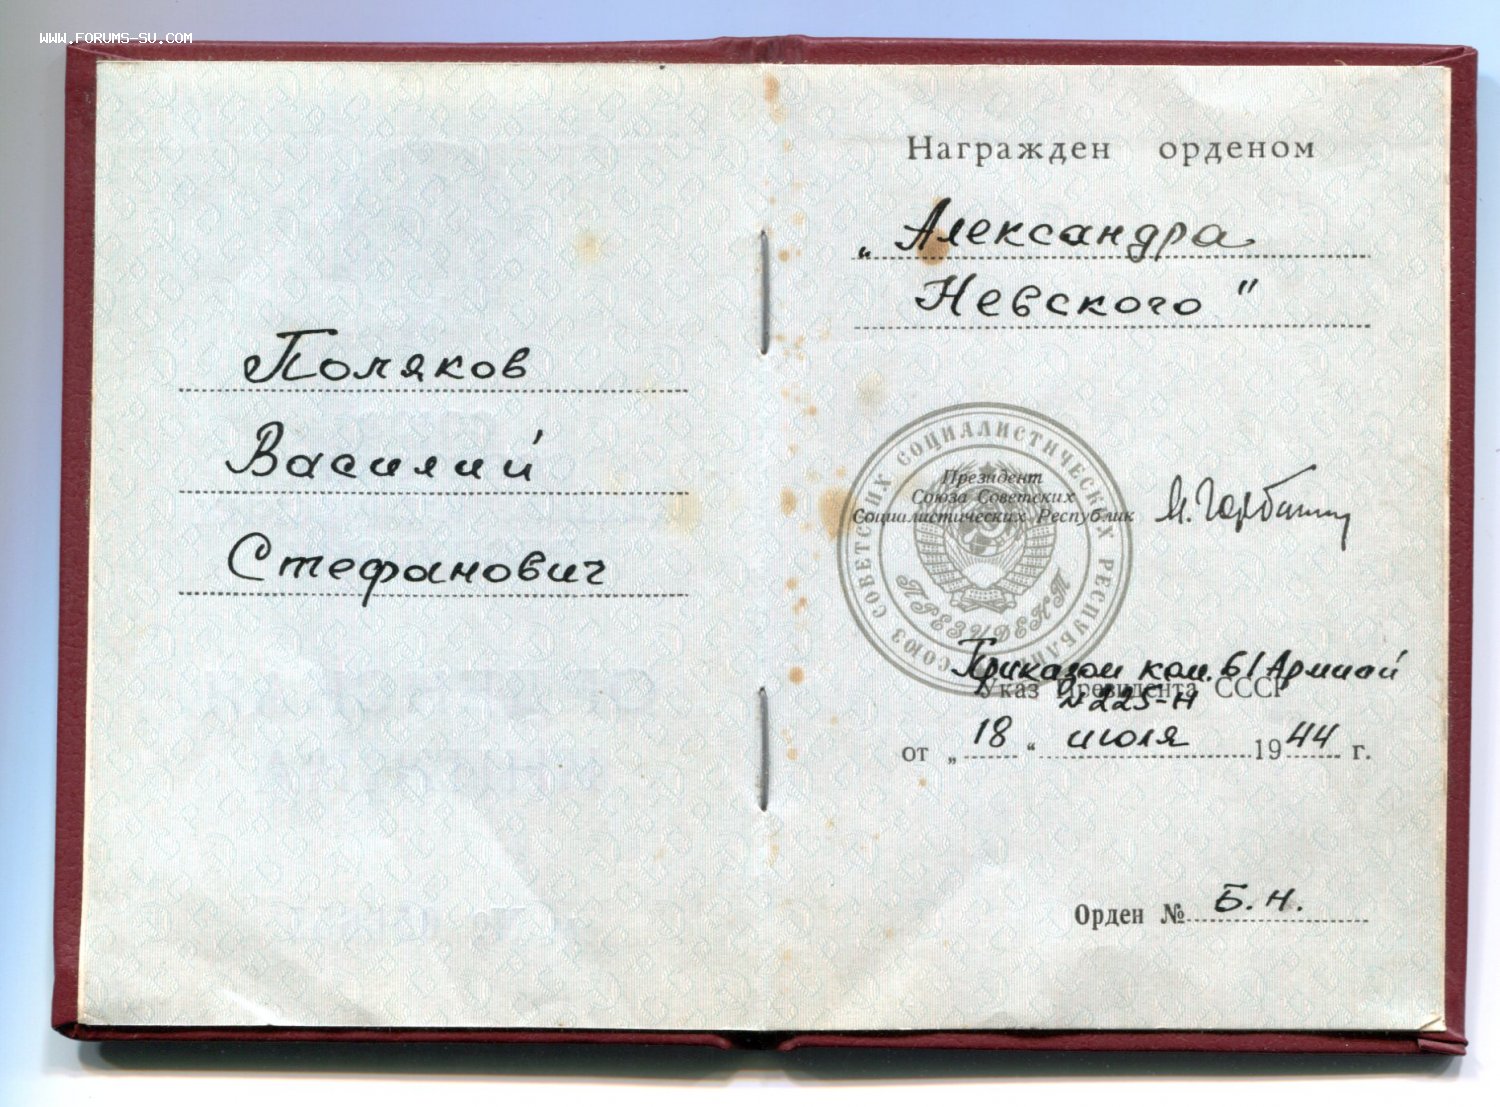 WWW.FORUMS-SU.COM
Поляков
Василий
Стефанович
Награжден орденом
„Александра
Невского"
СОЮЗ СОВЕТСКИХ СОЦИАЛИСТИЧЕСКИХ РЕСПУБЛИК
ПРЕЗИДЕНТ
Президент
Союза Советских
Социалистических Республик
М. Горбачев
Приказом ком. 61 Армией
Указ Президента СССР
№225-Н
от „18“ июля 1944 г.
Орден № Б.Н.